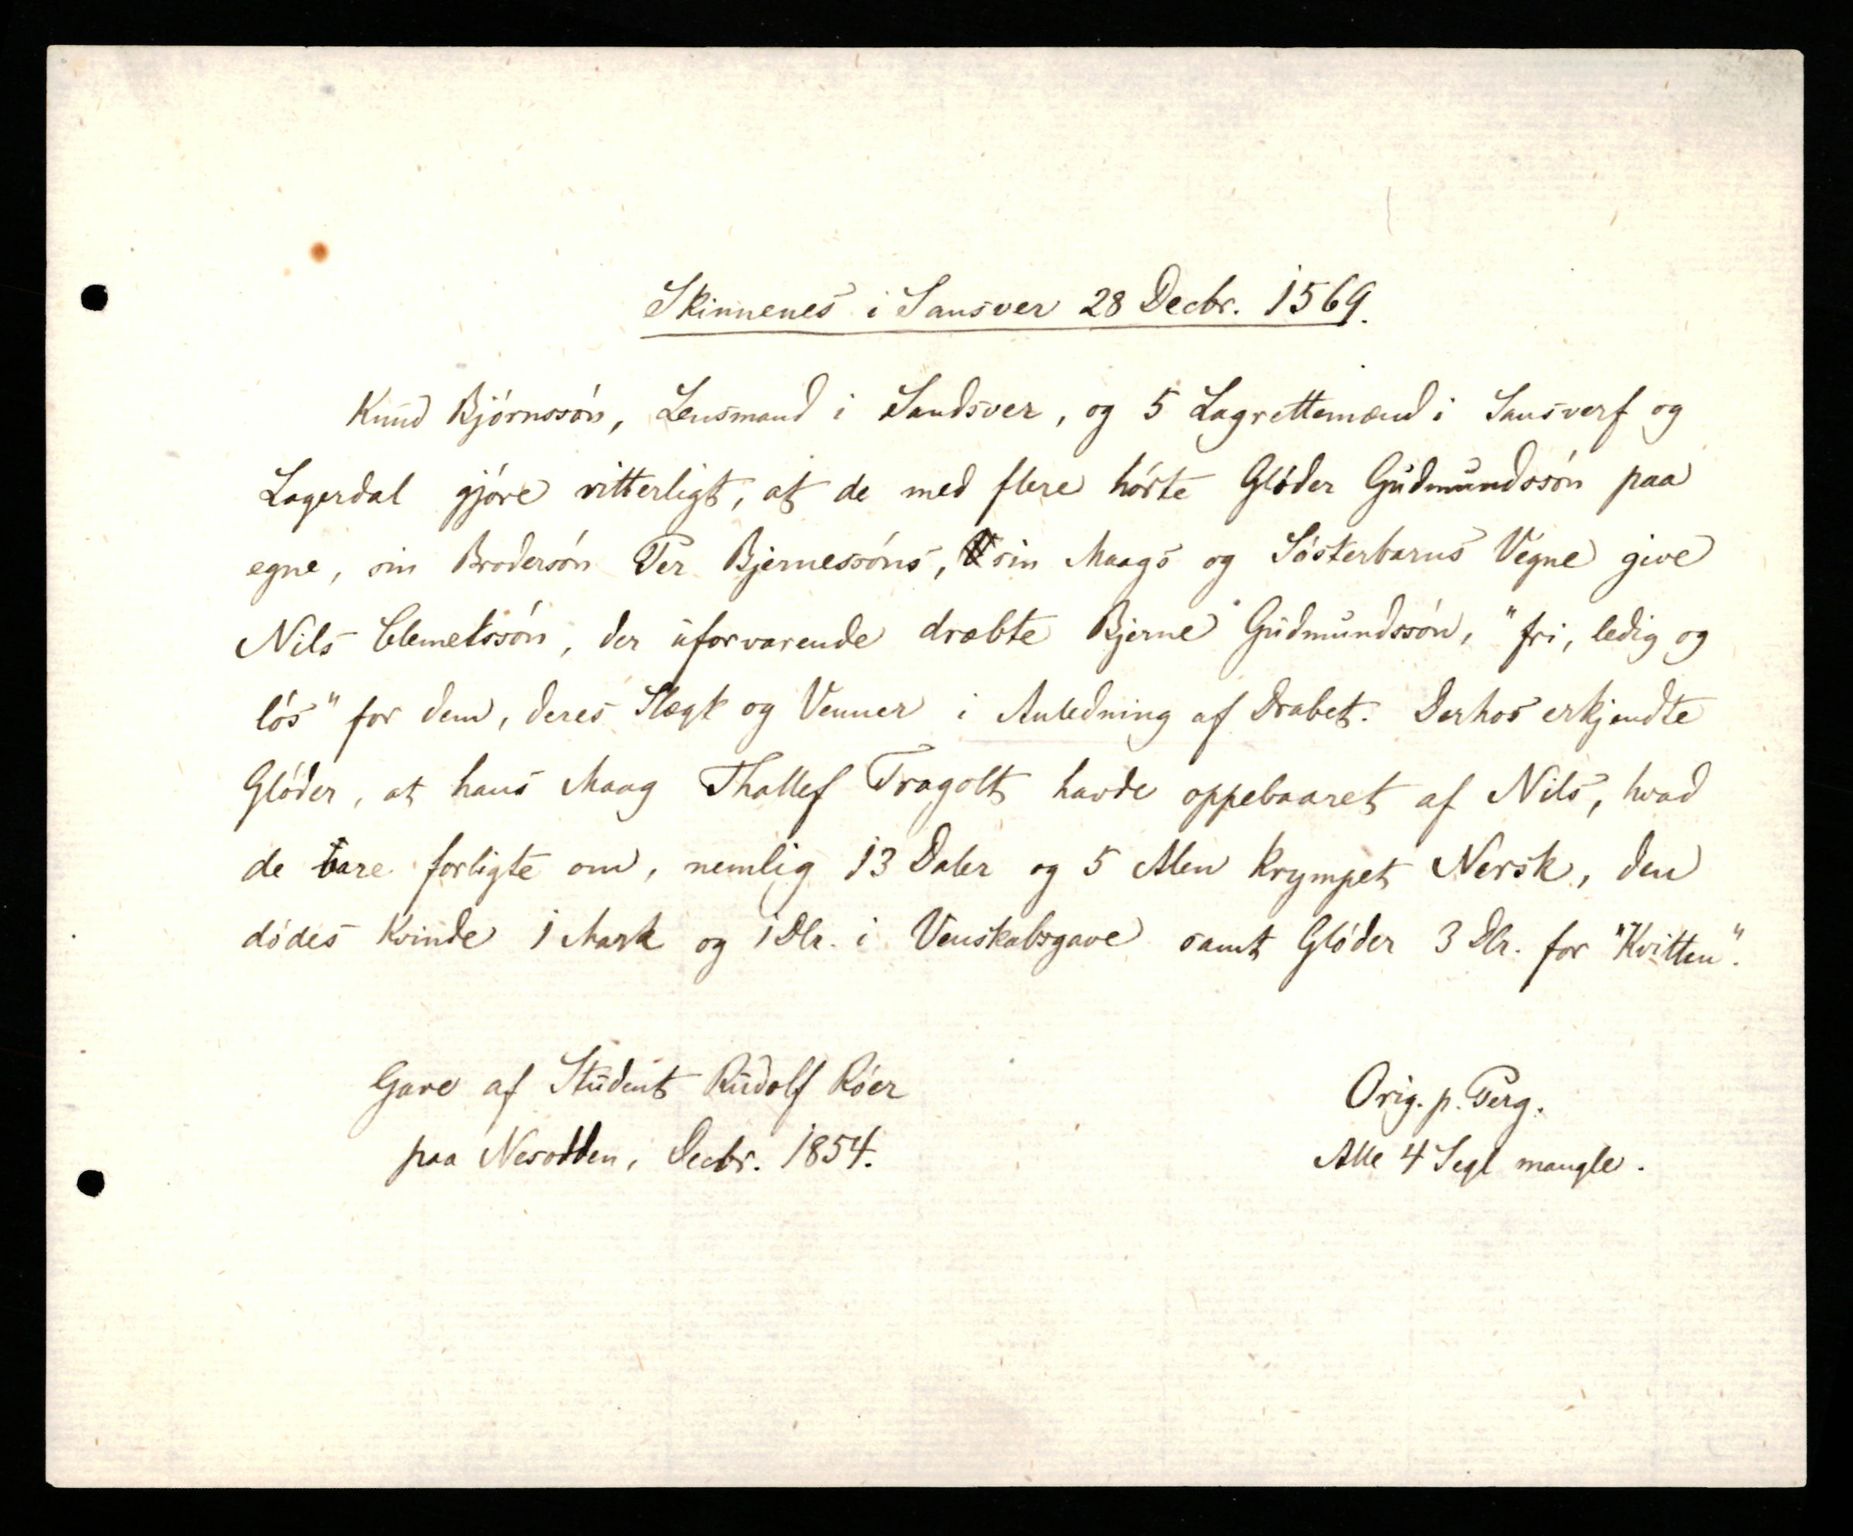 Skinnenes i Sansver 28 Decbr. 1569.
Knud Björnssön, Lensmand i Sandsver, og 5 Lagrettemænd i Sansverf og
Lagerdal gjöre vitterligt, at de med flere hörte Glöder Gudmundssön paa
egne, sin Brodersön Per Bjernessöns, sin Maags og Sösterbarns Vegne give
Nils Clemetssön, der uforvarende dræbte Bjerne Gudmundssön, "fri, ledig og
lös" for dem, deres Slægt og Venner i Anledning af Drabet. Derhos erkjendte
Glöder, at hans Maag Thallef Tragolt havde oppebaaret af Nils, hvad
de vare forligte om, nemlig 13 Daler og 5 Alen krympet Nersk, den
dödes Kvinde 1 Mark og 1 Dlr. i Venskabsgave samt Glöder 3 Dlr. for "Kvitten".
Gave af Student Rudolf Röer
paa Nesodden, Decbr. 1854.
Orig. p. Perg.
Alle 4 Segl mangle.